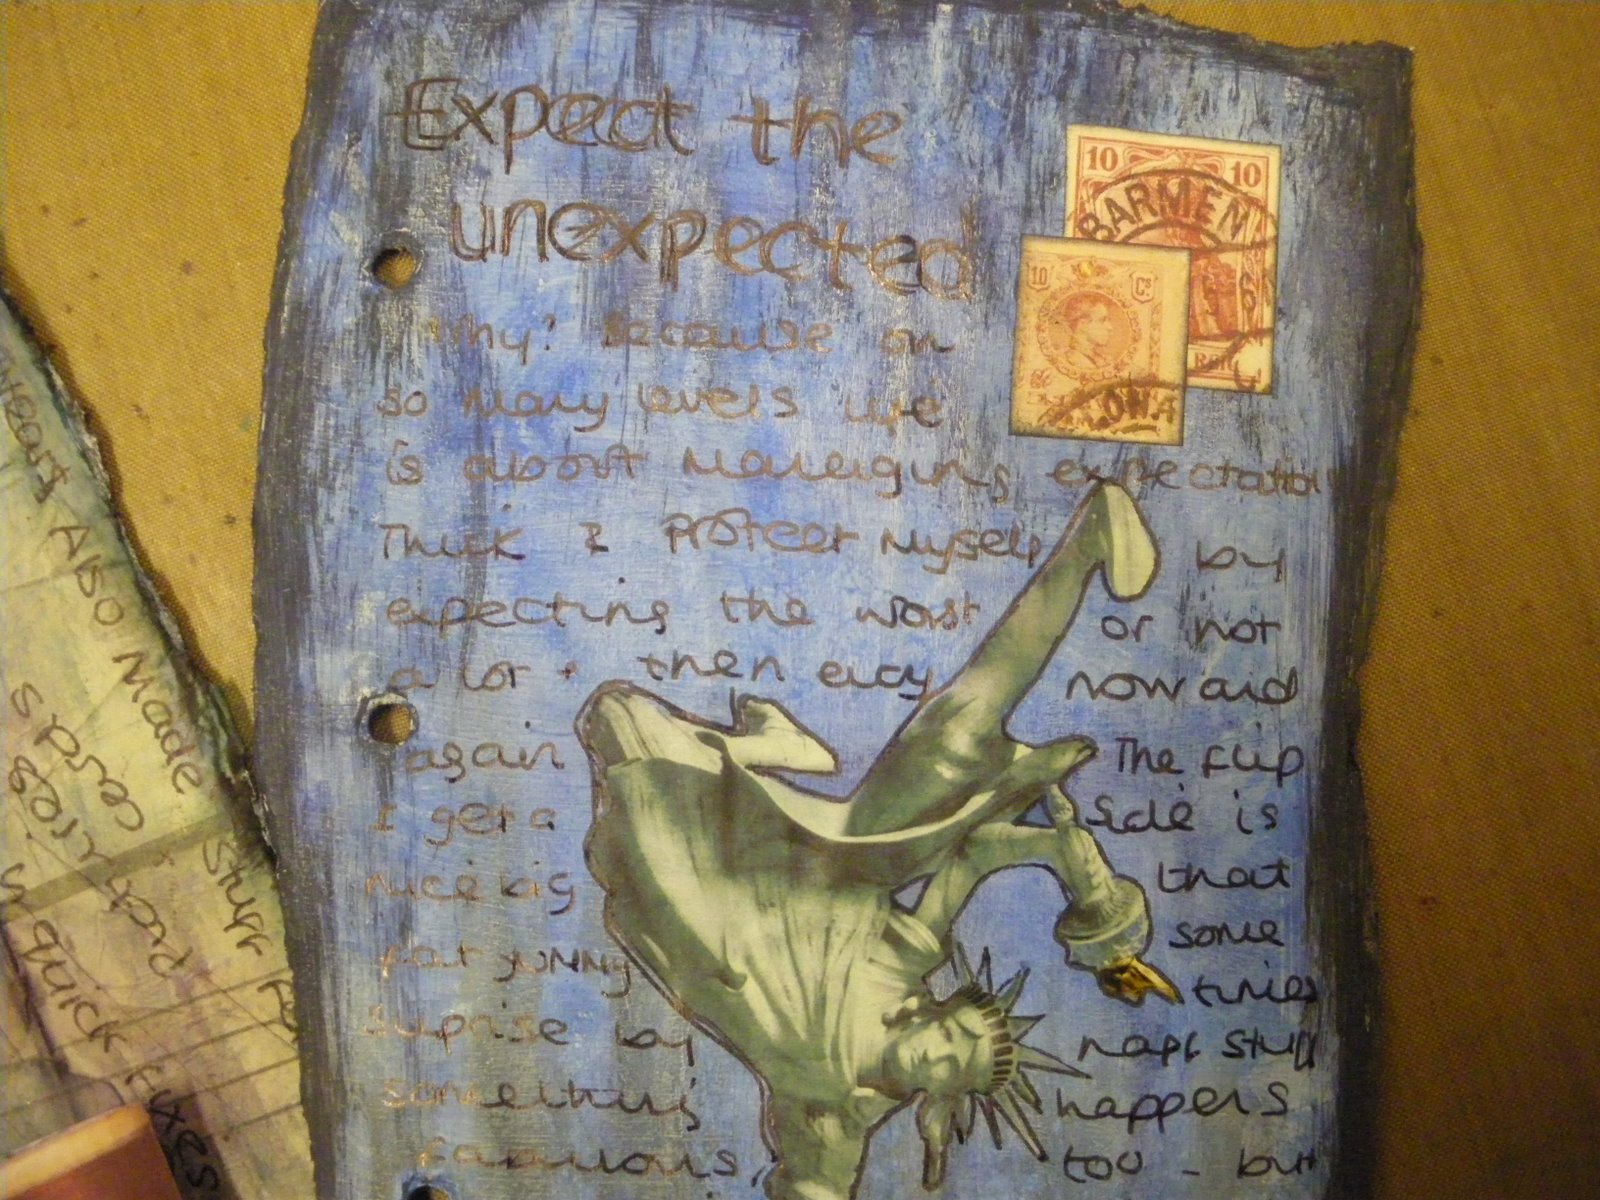 Expect the
unexpected
Why? Because on
so many levels life
is about managing expectation
Think I Protect Myself by
expecting the worst or not
a lot + then every now and
again
I get a
nice big
fat yummy
suprise by
something
fabulous,
The flip
side is
that
some
times
stuff
happens
too - but
10 10
BARMEN
10 Cs
heart Also Made Stuff for
cards
quick fixes